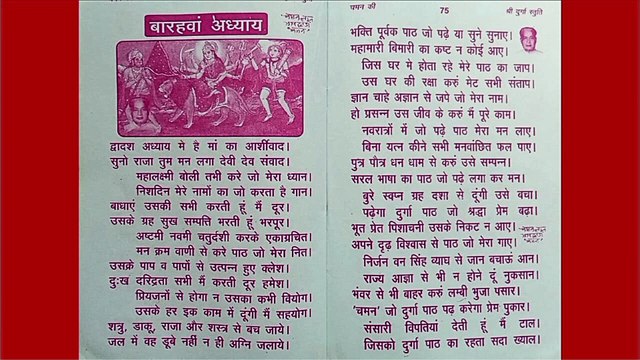 बारहवां अध्याय
द्वादश अध्याय मे है मां का आर्शीवाद।
सुनो राजा तुम मन लगा देवी देव संवाद।
महालक्ष्मी बोली तभी करे जो मेरा ध्यान।
निशदिन मेरे नामों का जो करता है गान।
बाधाएं उसकी सभी करती हूं मैं दूर।
उसके ग्रह सुख सम्पति भरती हूं भरपूर।
अष्टमी नवमी चतुर्दशी करके एकाग्रचित।
मन क्रम वाणी से करे पाठ जो मेरा नित।
उसके पाप व पापों से उत्पन्न हुए क्लेश।
दुःख दरिद्रता सभी मैं करती दूर हमेश।
प्रियजनों से होगा न उसका कभी वियोग।
उसके हर इक काम में दूंगी मैं सहयोग।
शत्रु, डाकू, राजा और शस्त्र से बच जाये।
जल में वह डूबे नहीं न ही अग्नि जलाये।
चमन की 75 श्री दुर्गा स्तुति
भक्ति पूर्वक पाठ जो पढ़े या सुने सुनाए।
महामारी बिमारी का कष्ट न कोई आए।
जिस घर मे होता रहे मेरे पाठ का जाप।
उस घर की रक्षा करुं मेट सभी संताप।
ज्ञान चाहे अज्ञान से जपे जो मेरा नाम।
हो प्रसन्न उस जीव के करुं मैं पूरे काम।
नवरात्रों में जो पढ़े पाठ मेरा मन लाए।
बिना यत्न कीने सभी मनवांछित फल पाए।
पुत्र पौत्र धन धाम से करुं उसे सम्पन्न।
सरल भाषा का पाठ जो पढ़े लगा कर मन।
बुरे स्वप्न ग्रह दशा से दूंगी उसे बचा।
पढ़ेगा दुर्गा पाठ जो श्रद्धा प्रेम बढ़ा।
भूत प्रेत पिशाचनी उसके निकट न आए।
अपने दृढ़ विश्वास से पाठ जो मेरा गाए।
निर्जन वन सिंह व्याघ से जान बचाऊं आन।
राज्य आज्ञा से भी न होने दूं नुकसान।
भंवर से भी बाहर करुं लम्बी भुजा पसार।
'चमन' जो दुर्गा पाठ पढ़ करेगा प्रेम पुकार।
संसारी विपतियां देती हूं मैं टाल।
जिसको दुर्गा पाठ का रहता सदा ख्याल।